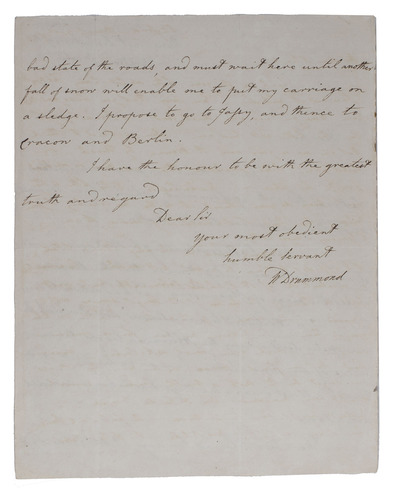 bad state of the roads, and must wait here until another
fall of snow will enable me to put my carriage on
a sledge. I propose to go to Jassy, and thence to
Cracow and Berlin.
I have the honour to be with the greatest
truth and regard
Dear Sir
your most obedient
humble servant
W Drummond